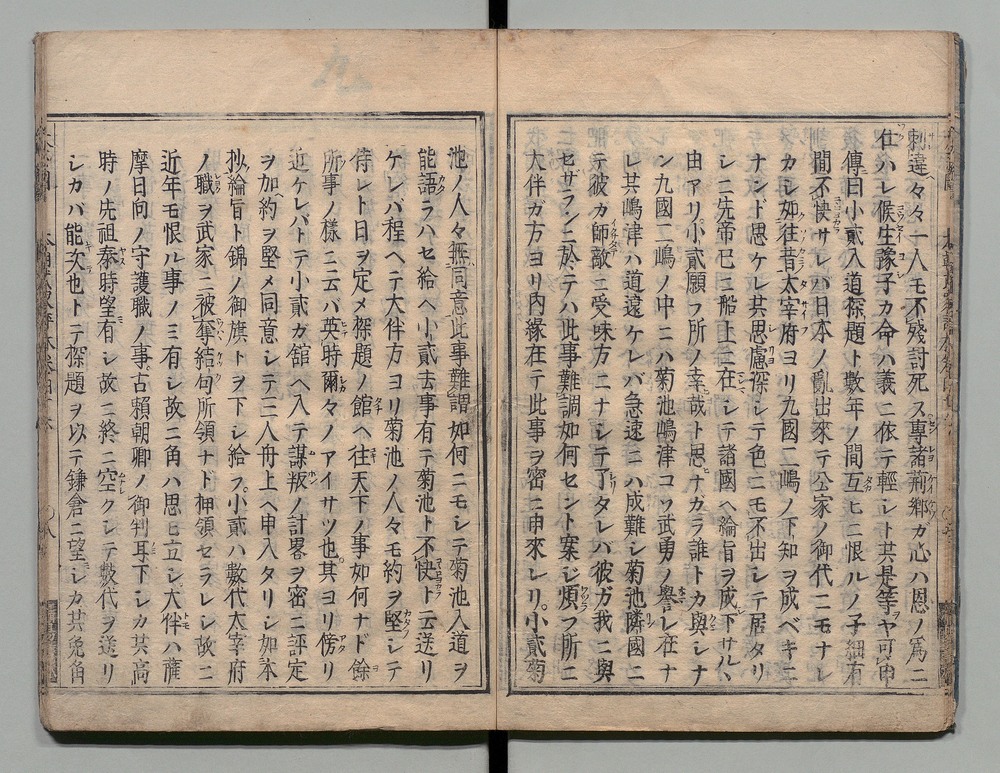 刺違々々一人モ不残討死ス專諸荊郷カ心ハ恩ノ爲ニ
仕ハレ候生豫子カ命ハ義ニ依テ輕シト共是等ヲヤ可申
傳曰小貳入道探題ト數年ノ間互ヒニ恨ルノ子細有
間不快サレハ日本ノ亂出來テ公家ノ御代ニモナレ
カシ如往昔太宰府ヨリ九國二嶋ノ下知ヲ成ベキニ
ナンド思ケレ共思慮深シテ色ニモ不出シテ居タリ
シニ先帝已ニ船上ニ在シテ諸國ヘ綸旨ヲ成下サル、
由アリ小貳願フ所ノ幸哉ト思ナカラ誰トカ與シナ
ン九國二嶋ノ中ニハ菊池嶋津コソ武勇ノ譽レ在ナ
レ其嶋津ハ道遠ケレバ急速ニハ成難シ菊池隣國ニ
テ彼カ師敵ニ受味方ニナシテ了タレバ彼ガ我ニ與
セサランニ於テハ此事難調如何セント案ジ煩フ所ニ
大伴ガ方ヨリ内縁在テ此事ヲ密ニ申來レリ小貳菊
池ノ人々無同意此事難謂如何ニモシテ菊池入道ヲ
能語ラハセ給ヘ小貳去事有テ菊池ト不快ト云送リ
ケレバ程ヘテ大伴方ヨリ菊池ノ人々モ約ヲ堅シテ
侍シト日ヲ定メ探題ノ館ヘ往天下ノ事如何ナド餘
所事ノ樣ニ云バ英時爾々ノアイサツ也其ヨリ傍リ
近ケレバトテ小貳ガ館ヘ入テ謀叛ノ計畧ヲ密ニ評定
ヲ加約ヲ堅メ同意シテ二人舟上ヘ申入タリシ如本
抄綸旨ト錦ノ御旗トヲ下シ給フ小貳ハ數代大宰府
ノ職ヲ武家ニ被奪結句所領ナド押領セラレシ故ニ
近年モ恨ル事ノミ有シ故ニ角ハ思ヒ立シ大伴ハ薩
摩日向ノ守護職ノ事古頼朝卿ノ御判耳下シカ其高
時ノ先祖泰時望有シ故ニ終ニ空クシテ數代ヲ送リ
シカバ能次也トテ探題ヲ以テ鎌倉ニ望シカ共兎角